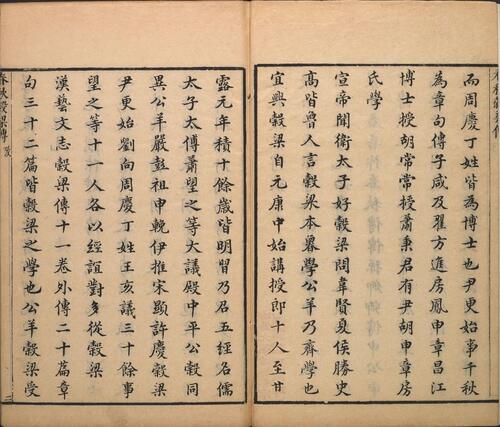 而周慶丁姓皆為博士也尹更始事千秋
為章句傳子咸及翟方進房鳳申章昌江
博士授胡常常授蕭秉君有尹胡申章房
氏學
宣帝聞衞太子好穀梁問韋賢夏侯勝史
高皆魯人言穀梁本魯學公羊乃齊學也
宜興穀梁自元康中始講授郎十人至甘
露元年積十餘歲皆明習乃召五經名儒
太子太傅蕭望之等大議殿中平公穀同
異公羊嚴彭祖申輓伊推宋顯許慶穀梁
尹更始劉向周慶丁姓王亥議三十餘事
望之等十一人各以經誼對多從穀梁
漢藝文志穀梁傳十一卷外傳二十篇章
句三十二篇皆穀梁之學也公羊穀梁受
春秋穀梁傳